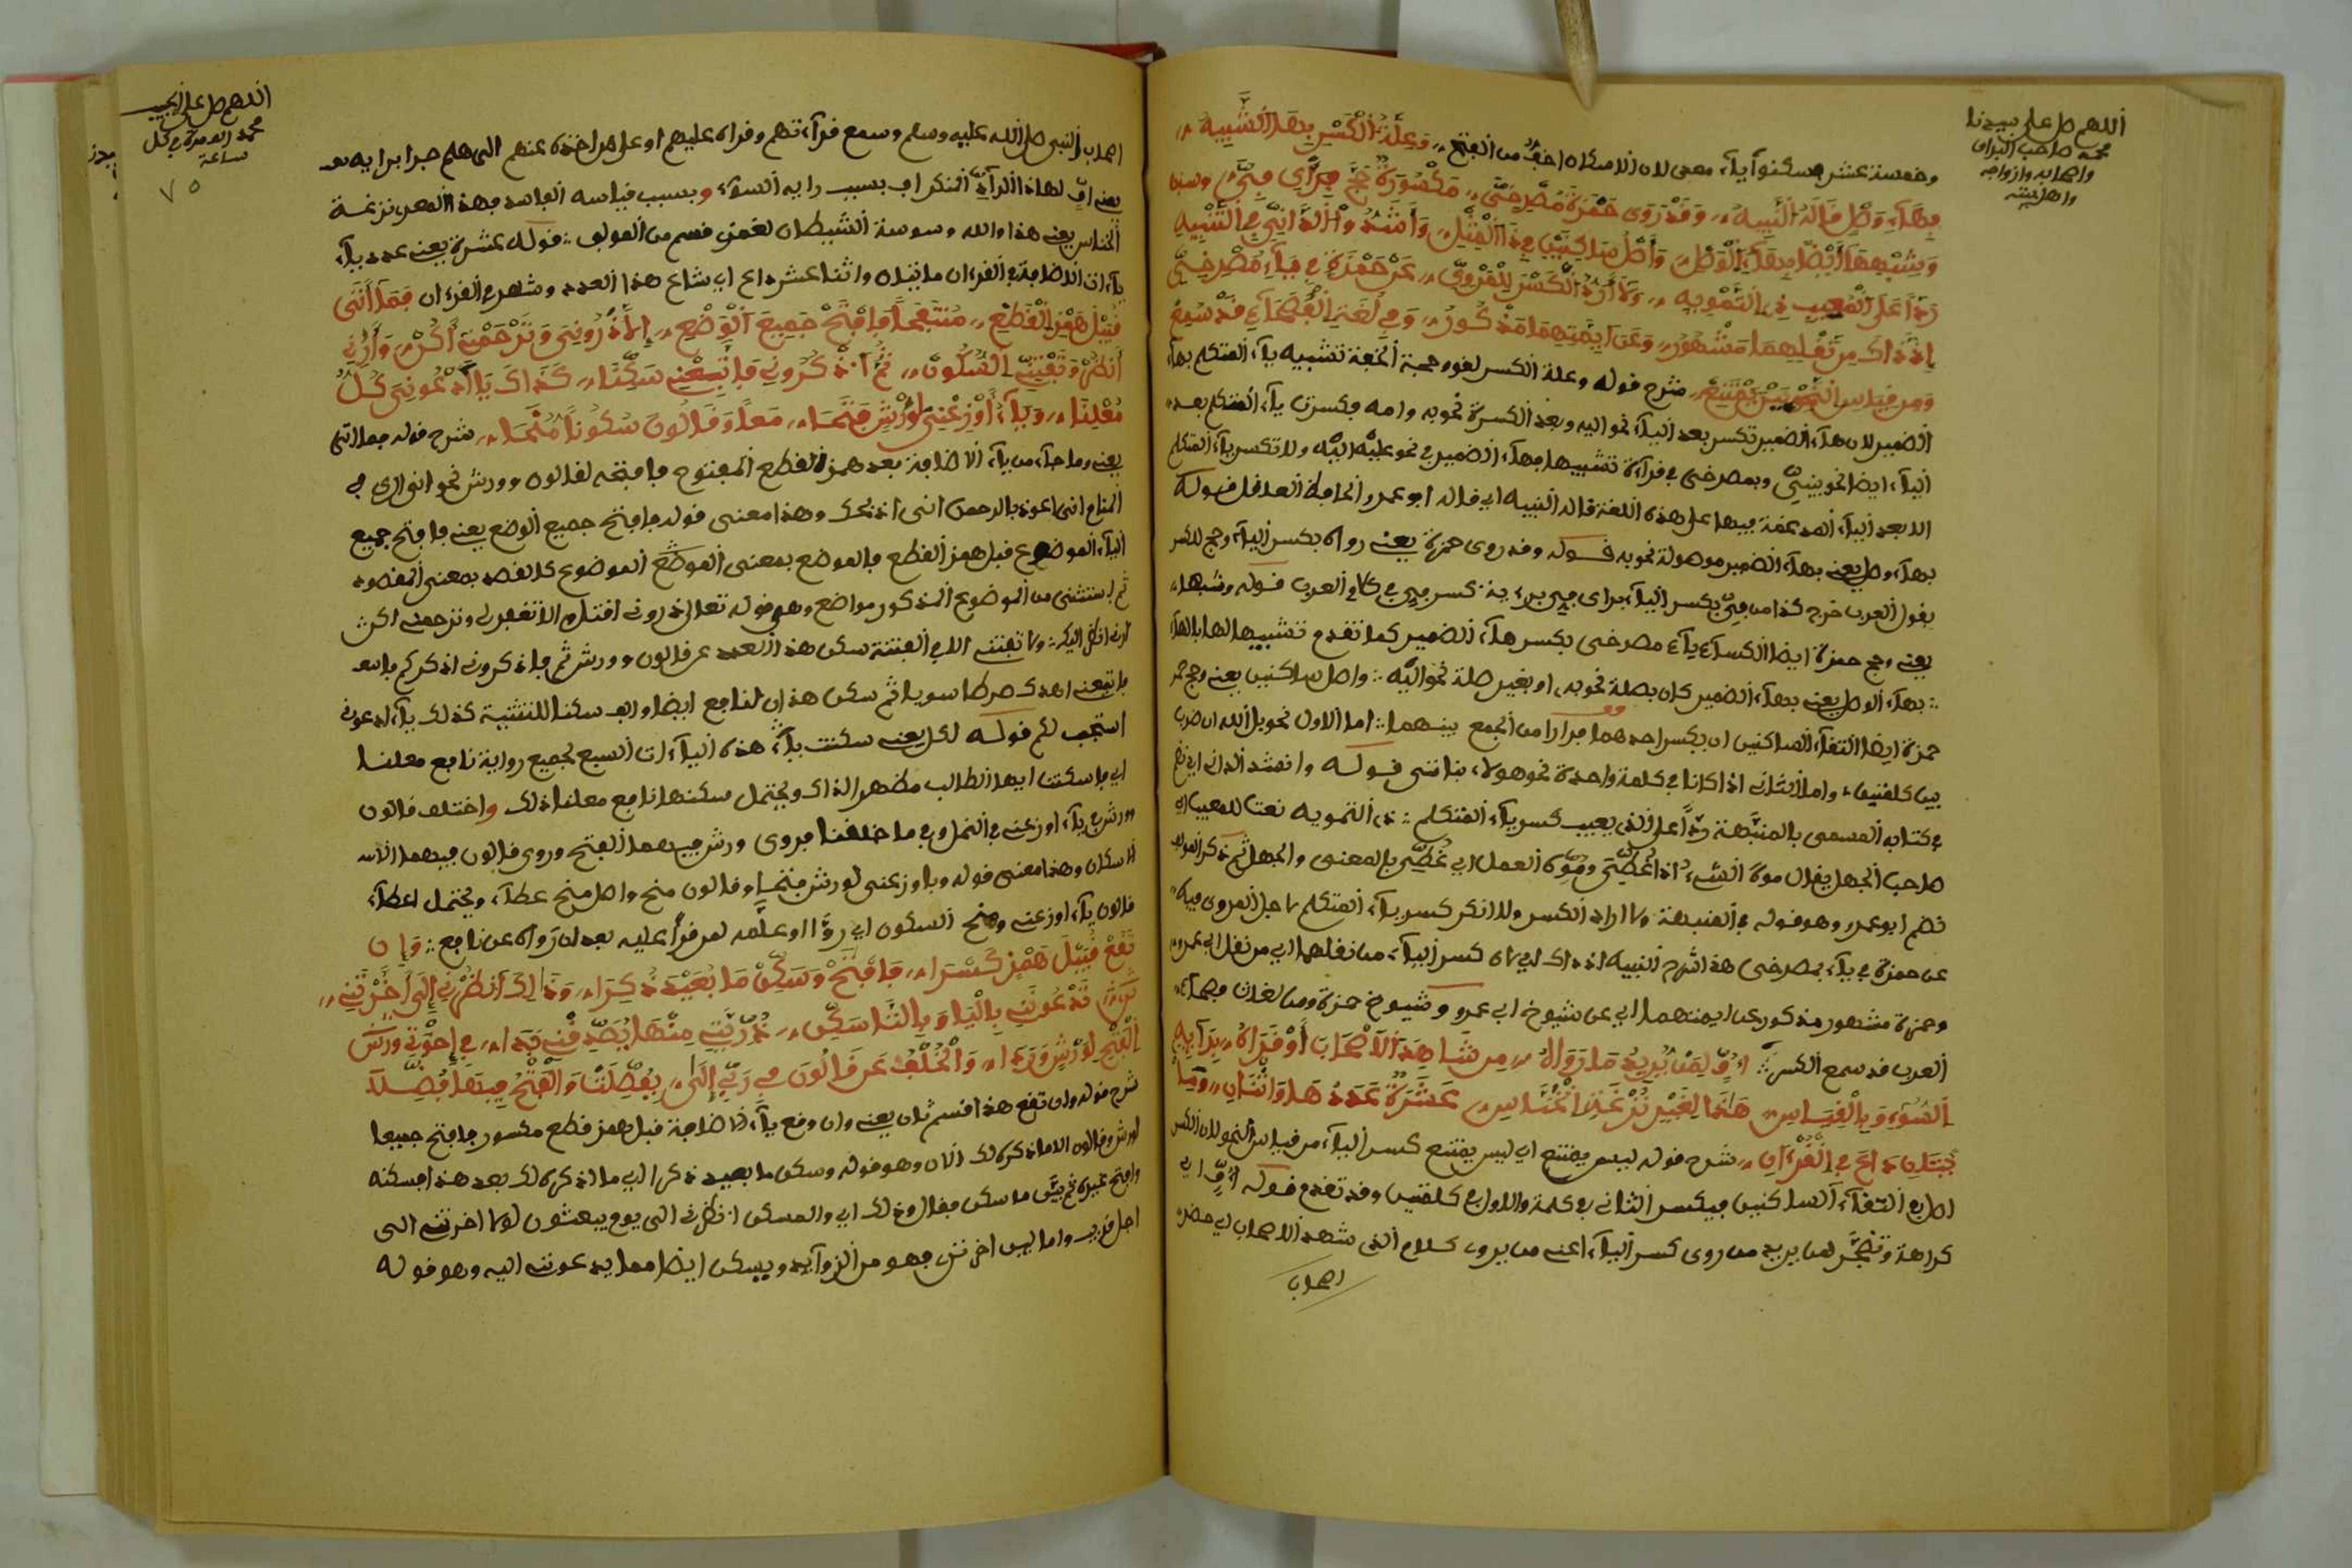 اللهم صل على سيدنا
محمد صاحب البراق
واصحابه وازواجه
واهل بيته
وخمسة عشر مسكنوا ياء، معى لان الاسكان اخف من الفتح وعلة الكسر بهذا الشبيه
بهاء وصل قاله النبيه وقد روى حمزة مصرخي مكسورة حج براى في
وشبهها أيضا بهاء الوصل وأصل ساكنين في ذا المثل وأنشد الداني في التنبيه
ردا على المعيب ذي التمويه ولا أراد الكسر للمروي عن حمزة في ياء مصرخي
إذ ذاك من نقلهما مشهور وعن ايمتهما مذكور وفي لغة الفصحاء قد سمع
ومن قياس النحو ليس يمتنع شرح قوله وعلة الكسر لغو وحجة الخ تشبيه ياء المتكلم بهاء
الضمير لان هاء الضمير تكسر بعد الياء نحو اليه وبعد الكسرة نحو به وامه وكسرت ياء المتكلم بعد
الياء ايضا نحو بني وبمصرخي في قراءة تشبيها بهاء الضمير في نحو عليه اليه ولا تكسر ياء المتكلم
الا بعد الياء المدغمة فيها على هذه اللغة قاله النبيه اي قاله ابو عمرو الحافظ العدل قوله
بهاء وصل يعني بهاء الضمير موصولة نحو به قوله وقد روى حمزة يعني رواه بكسر الياء وحج للكسر
يقول العرب خرج كذا من في بكسر الياء براى في كسر في في كلام العرب قوله وشبهها
يعني وحج حمزة ايضا لكسر ياء مصرخي بكسر هاء الضمير كما تقدم تشبيهها لها بالهاء
بهاء الوصل يعني بهاء الضمير كان بصلة نحو به او بغير صلة نحو اليه واصل ساكنين يعني وحج
حمزة ايضا التقاء الساكنين ان يكسر احدهما فرارا من الجمع بينهما اما الاول نحو بل الله ان ضرب
بين كلمتين واما الثاني اذا كانا في كلمة واحدة نحو هولاء بنا نسي قوله وانشد الداني اي نظم
في كتابه المسمى بالمنبهة ردا على الذي يعيب كسر ياء المتكلم ذي التمويه نعتا للمعيب اي
صاحب الجهل يقال موه الشيء اذا غطي وموه العمل اي غطي بالمعنى والجهل ثم ذكر
نظم ابو عمرو وهو قوله في المنبهة ولا اراد الكسر ولا انكر كسر ياء المتكلم لاجل المروي فيه
عن حمزة في ياء بمصرخي هذا شرح النبيه اذ ذاك اي لان كسر الياء من نقلهما اي من نقل ابي عمرو
وحمزة مشهور مذكور عن ايمتهما اي عن شيوخ ابي عمرو وشيوخ حمزة ومن لغات فصحاء
العرب قد سمع الكسر أف لمن يريد ما رواه من شاهد الأصحاب أو قراه برايه
السوء وبالقياس هذا لغير نزغة الخناس عشرة عدد ها واثنان
شرح قوله ليس يمتنع اي ليس يمتنع كسر الياء من قياس النحو لان الكسر
اصل في التقاء الساكنين فيكسر الثاني في كلمة والاول في كلمتين وقد تقدم قوله أف اي
كراهة وتضجر لمن يريد من روى كسر الياء اعني من يرد كلام الذي شهد الاصحاب اي حضر
اصحاب
اللهم صل على الحبيب
محمد الف مرة في كل
ساعة
٧٥
اصحاب النبي صل الله عليه وسلم وسمع قراءتهم وقراه عليهم او على من اخذه عنهم الى هلم جرا برايه
يعني اف لهذا الراد المنكر اف بسبب رايه السوء وبسبب قياسه الفاسد وهذا المعنى نزغة
الخناس يعني هذا والله وسوسة الشيطان لعمري قسم من المولف قوله عشرة يعني عدد ياء
ياءات الاضافة في القرءان مايتان واثنا عشر داع اي شاع هذا العدد وشهر في القرءان فما أتى
قبيل همز القطع منفتحا فافتح جميع الوضع إلا ذروني وترحمني أكن وأرني
أنظر وتفتني السكون ثم اذكروني فاتبعني سكنا كذاك يا ادعوني كل
معلنا وياء أوزعني لورش فتحا معا وقالون سكونا منحا شرح قوله فما اتى
يعني وما جاء من ياء الاضافة بعد همز القطع المفتوح فافتحه لقالون وورش نحو اني ارى في
المنام اني اعوذ بالرحمن اني اذبحك وهذا معنى قوله فافتح جميع الوضع يعني فافتح جميع
الياء الموضوع قبل همز القطع فالموضع بمعنى الموضوع كالقصد بمعنى المقصود
ثم استثنى من الموضوع المذكور مواضع وهو قوله تعالى ذروني اقتل والا تغفر لي وترحمني اكن
ارني انظر اليك ولا تفتني الا في الفتنة سكن هذا العدد عن قالون وورش ثم فاذكروني اذكركم
فاتبعني اهدك صراطا سويا ثم سكن هذان لنافع ايضا والف سكنا للتثنية كذلك ياء ادعوني
استجب لكم قوله لكل يعني سكنت ياء هذه الياءات السبع لجميع رواية نافع معلنا
اي فاسكنن ايها الطالب مظهر الذاك ويحتمل سكنها نافع معلنا ذلك واختلف قالون
وورش في ياء اوزعني في النمل وفي ما خلفنا فروى ورش فيهما الفتح وروى قالون فيهما الا
الاسكان وهذا معنى قوله ويا اوزعني لورش فتحا وقالون منح واصل منح عطاء ويحتمل اعطاء
قالون ياء اوزعني ومنح السكون اي رواه وعلمه لمن قرأ عليه بعد ان رواه عن نافع وإن
تقع قبيل همز كسرا فافتح وسكن ما بعيد ذكرا وذاك أنظرني إلى أخرتني
تدعونني باليا وبالتا سكن ذريتي منها يصدقني بدا في إخوتي ورش
الفتح لورش وردا والخلف عن قالون في ربي إلى بفصلت والفتح فيها فضلا
شرح قوله وان تقع هذا قسم ثان يعني وان وقع ياء الاضافة قبل همز قطع مكسور فافتح جميعا
لورش وقالون الا ما ذكره لك الان وهو قوله وسكن ما بعيد ذكرا اي ما اذكره لك بعد هذا فسكنه
وافتح غيره ثم بين ما سكن فقال وذلك اي والمسكن انظرني الى يوم يبعثون لولا اخرتني الى
اجل قريب واما لين اخرتن فهو من الزوايد ويسكن ايضا مما يدعونني اليه وهو قوله